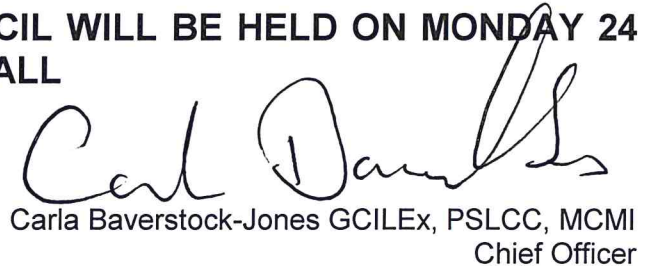 CIL WILL BE HELD ON MONDAY 24
ALL
Carla Baverstock-Jones GCILEx, PSLCC, MCMI
Chief Officer